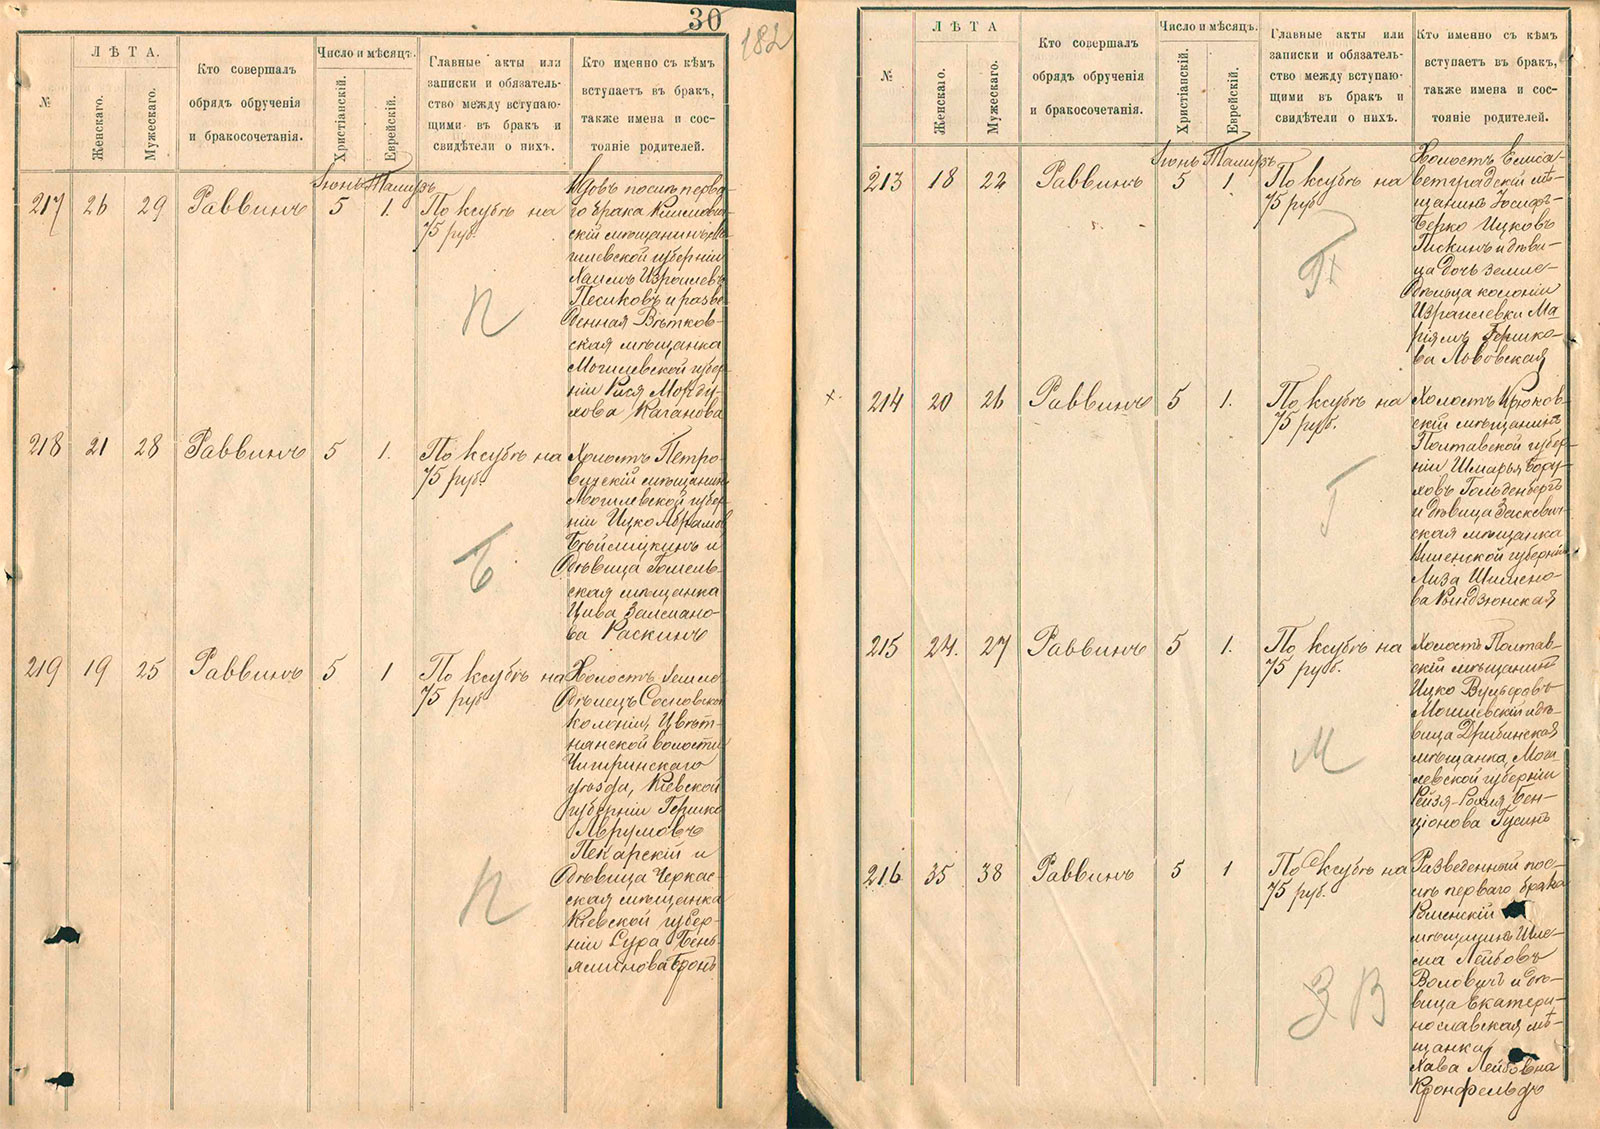 30
182
ЛѢТА.
Число и мѣсяцъ.
№
Женскаго.
Мужескаго.
Кто совершалъ
обрядъ обрученія
и бракосочетанія.
Христіанскій.
Еврейскій.
Главные акты или
записки и обязатель-
ство между вступаю-
щими въ бракъ и
свидѣтели о нихъ.
Кто именно съ кѣмъ
вступаетъ въ бракъ,
также имена и сос-
тояніе родителей.
Іюнь Тамузъ
217 26 29 Раввинъ 5 1. По ксубѣ на
75 руб.
Вдовъ послѣ перва-
го брака Климович-
скій мѣщанинъ Мо-
гилевской губерніи
Хаимъ Израилевъ
Песиковъ и разве-
денная Вѣтков-
ская мѣщанка
Могилевской губер-
ніи Рися Морду-
хова Каганова
П
218 21 28 Раввинъ 5 1. По ксубѣ на
75 руб.
Холостъ Петро-
вичскій мѣщанинъ
Могилевской губер-
ніи Ицко Абрамов
и
дѣвица Гомель-
ская мѣщанка
Цива Залмано-
ва Раскинъ
Б
219 19 25 Раввинъ 5 1 По ксубѣ на
75 руб.
Холостъ земле-
дѣлецъ Сосновской
колоніи, Цвѣт-
нянской волости
Чигиринскаго
уѣзда, Кіевской
губерніи Гершко
Аврумовъ
Пекарскій и
дѣвица Черкас-
ская мѣщанка
Кіевской губер-
ніи Сура Бень-
яминова Бронъ
П
ЛѢТА
Число и мѣсяцъ.
№
Женскаго.
Мужескаго.
Кто совершалъ
обрядъ обрученія
и бракосочетанія.
Христіанскій.
Еврейскій.
Главные акты или
записки и обязатель-
ство между вступаю-
щими въ бракъ и
свидѣтели о нихъ.
Кто именно съ кѣмъ
вступаетъ въ бракъ,
также имена и сос-
тояніе родителей.
Іюнь Тамузъ
213 18 22 Раввинъ 5 1. По ксубѣ на
75 руб.
Холостъ Елиса-
ветградскій мѣ-
щанинъ Іосифъ-
Берко Ицковъ
Пискинъ и дѣви-
ца дочь земле-
дѣльца колоніи
Израилевки Ма-
ріямъ Гершко-
ва Львовская
214 20 26 Раввинъ 5 1. По ксубѣ на
75 руб.
Холостъ Крюков-
скій мѣщанинъ
Полтавской губер-
ніи Шмарья Бору-
ховъ Гольденбергъ
и дѣвица Заскевич-
ская мѣщанка
Виленской губерніи
Лиза Шимено-
ва
Г
215 24. 27 Раввинъ 5 1. По ксубѣ на
75 руб.
Холостъ Полтав-
скій мѣщанинъ
Ицко Вульфовъ
Могилевскій и дѣ-
вица Дрибинская
мѣщанка, Моги-
левской губерніи
Рейзя-Рохля Бен-
ціонова Гусинъ
М
216 35 38 Раввинъ 5 1 По ксубѣ на
75 руб.
Разведенный пос-
лѣ перваго брака
Роменскій
мѣщанинъ Шле-
ма Лейбовъ
Воловичъ и дѣ-
вица Екатери-
нославская мѣ-
щанка
Хава Лейбовна
Кронфельдъ
З В